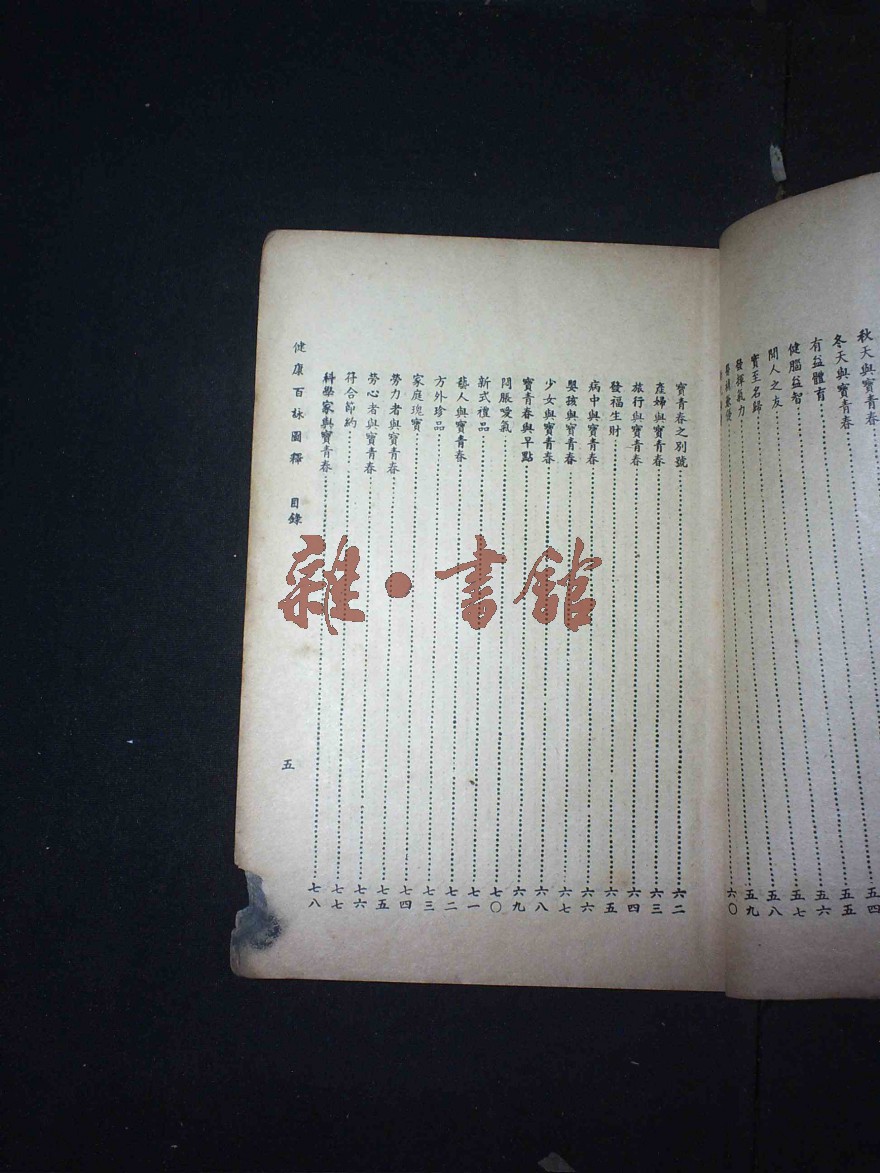 秋天與寶青春⋯⋯五四
冬天與寶青春⋯⋯五五
有益體育⋯⋯五六
健腦益智⋯⋯五七
閒人之友⋯⋯五八
實至名歸⋯⋯五九
發揮氣力⋯⋯六〇
寶青春之別號⋯⋯六二
產婦與寶青春⋯⋯六三
旅行與寶青春⋯⋯六四
發福生財⋯⋯六五
病中與寶青春⋯⋯六六
嬰孩與寶青春⋯⋯六七
少女與寶青春⋯⋯六八
寶青春與早點⋯⋯六九
悶脹噯氣⋯⋯七〇
新式禮品⋯⋯七一
藝人與寶青春⋯⋯七二
方外珍品⋯⋯七三
家庭瑰寶⋯⋯七四
勞力者與寶青春⋯⋯七五
勞心者與寶青春⋯⋯七六
符合節約⋯⋯七七
科學家與寶青春⋯⋯七八
健康百詠圖釋 目錄 五
雜·書館